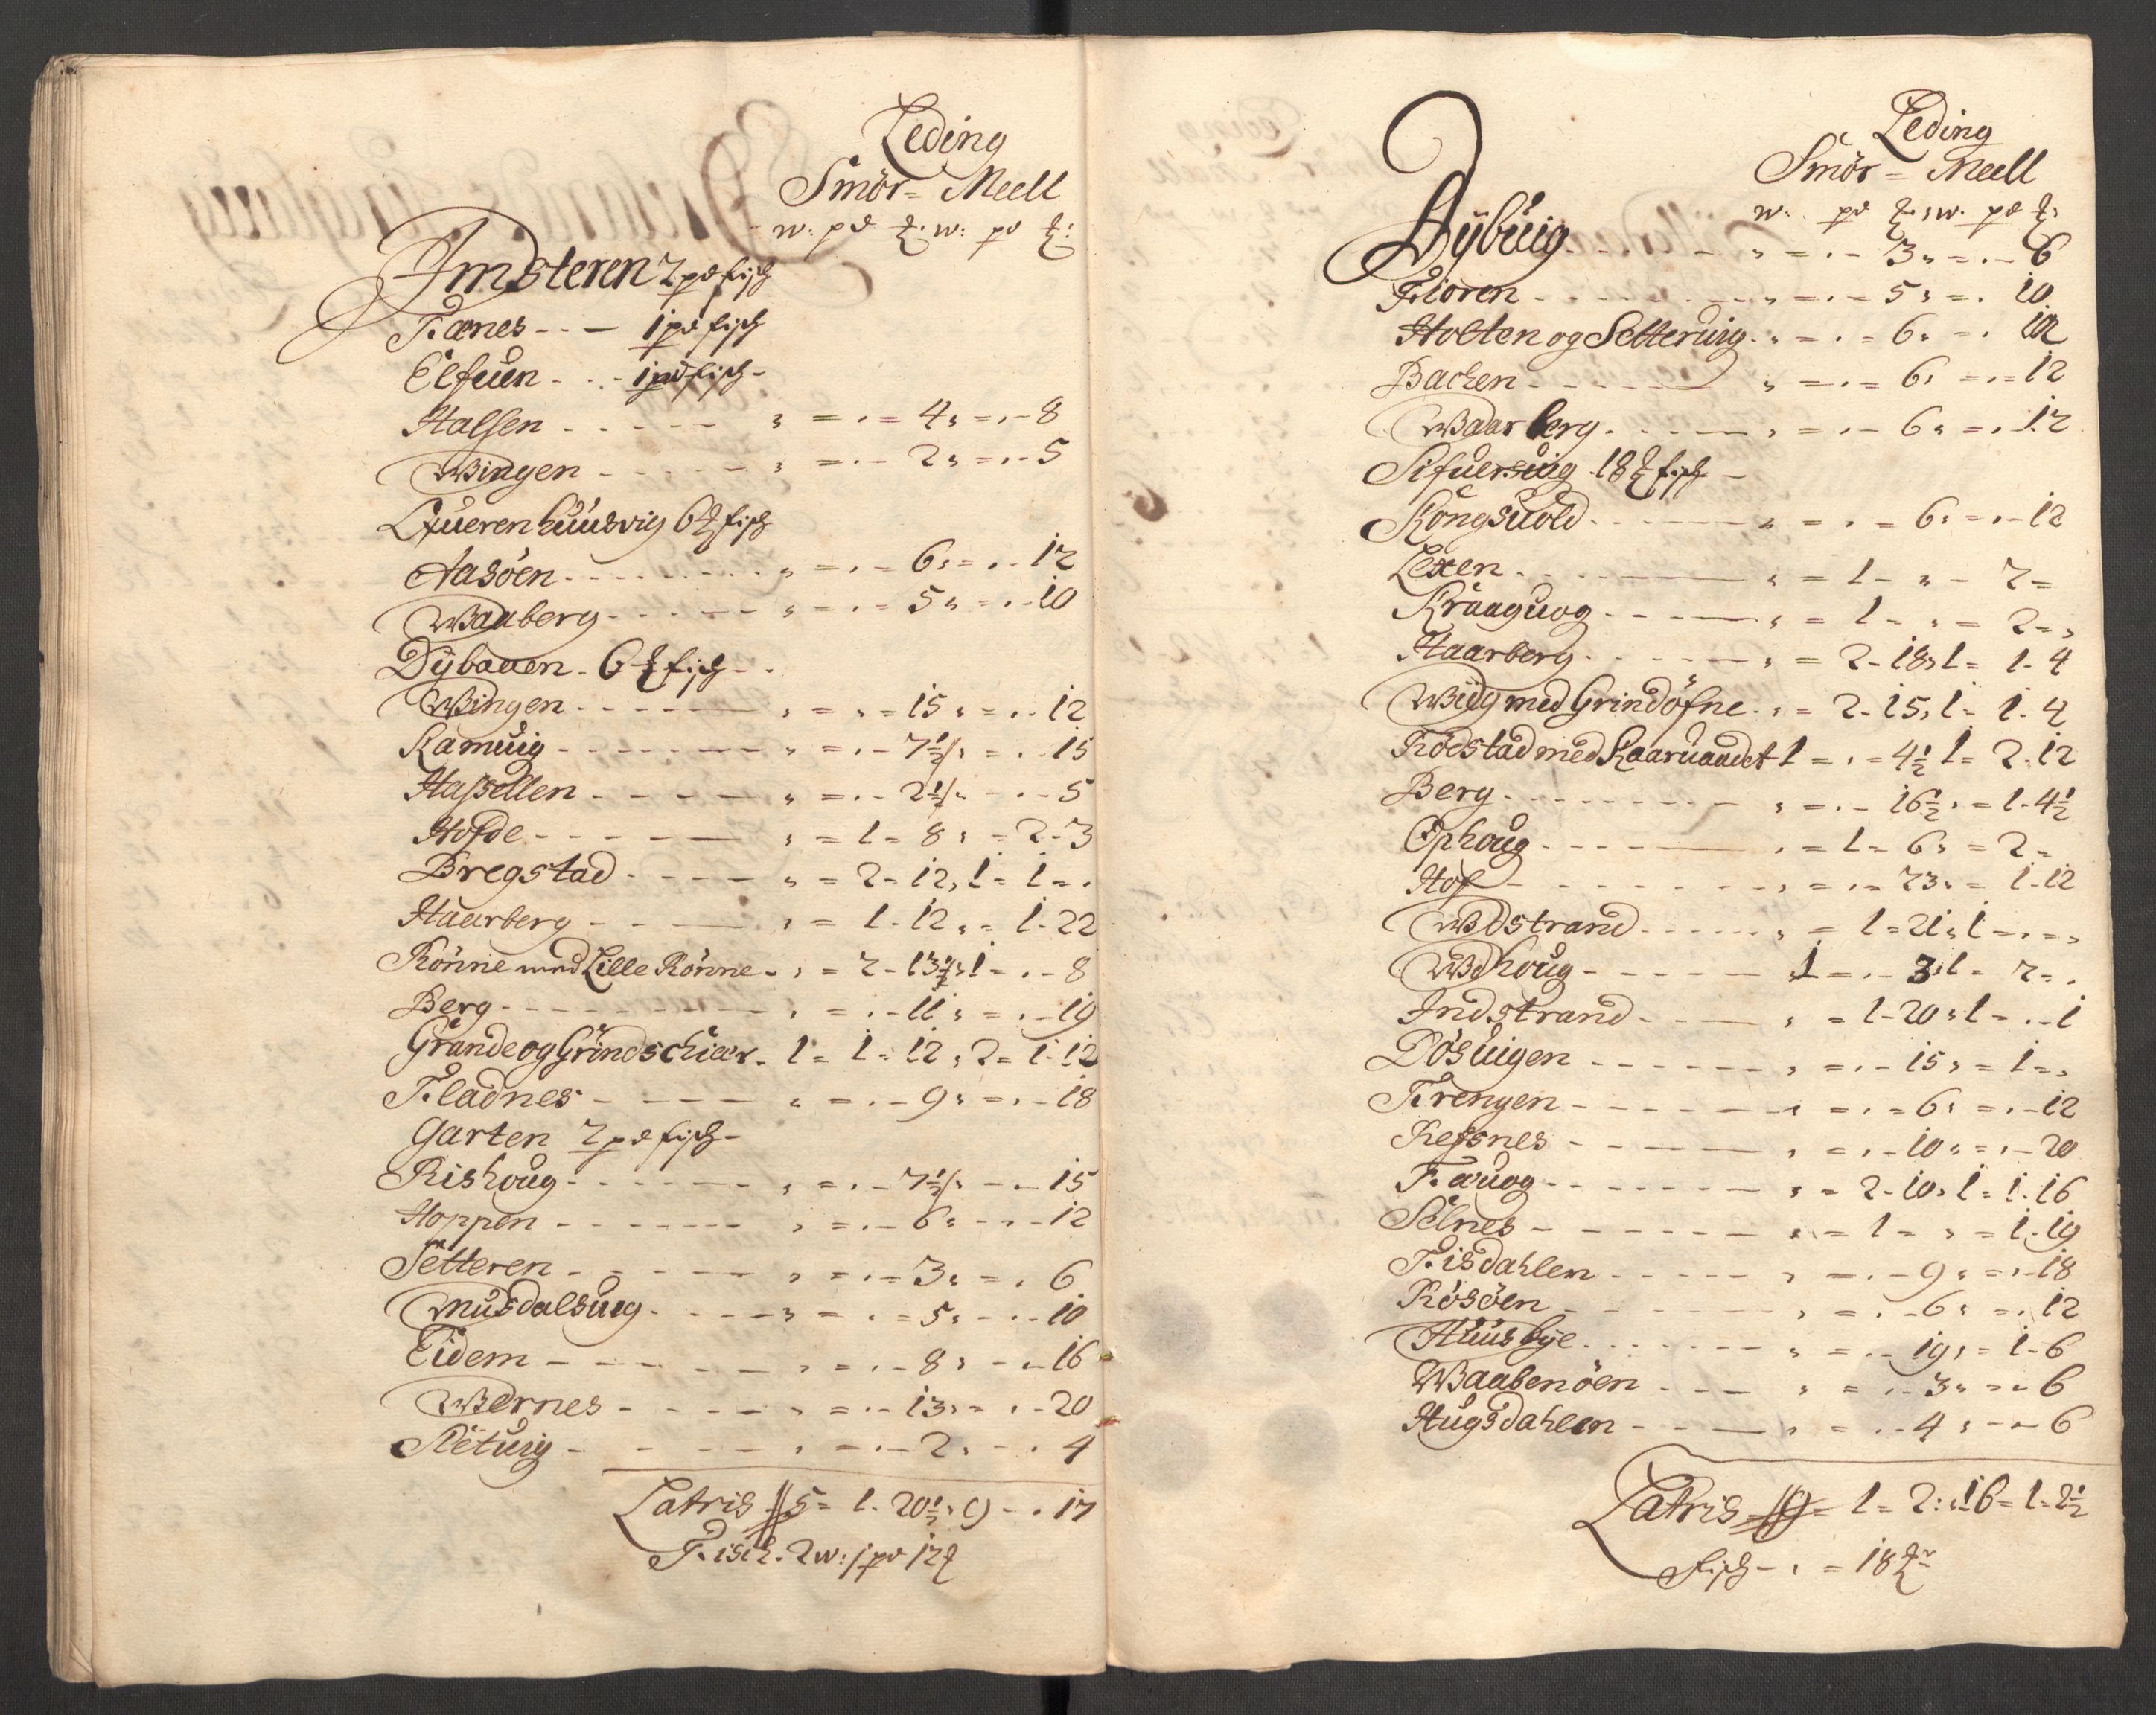 Leding
Smör = Meell
w: pd ℔: w: pd ℔:
Imsteren 2 pd fisch
Fænes - - - 1 pd fisch
Elfuen - - - 1 pd fisch -
Halsen - - - - - " = " = 4 " = " - 8
Wingen - - - - - " = " - 2 " = " - 5
Querenhuusvig 6 ℔ fisch
Aasöen - - - - - " = " - 6 " = " - 12
Waaberg - - - - - " = " = 5 " = " - 10
Dÿbauen - 6 ℔ fisch - -
Wingen - - - - - " = " = 15 " = " - 12
Ramuig - - - - - " = " - 7½ " = " - 15
Hassellen - - - - - " = " - 2½ " - " - 5
Hofde - - - - - " = 1 = 8 " = 2 - 3
Bregstad - - - - " = 2 - 12 " 1 = 1 = "
Haarberg - - - - " = 1 - 12 " = 1 - 22
Rönne med Lille Rönne - " = 2 - 13½ " 1 = " - 8
Berg - - - - - " = " - 11 " = " - 19
Grande og Grindschier - 1 = 1 = 12 " 2 = 1 - 12
Fladnes - - - - - " = " - 9 " = " - 18
Garten 2 pd fisch -
Rishoug - - - - - " = " - 7½ " - " - 15
Hoppen - - - - - " = " - 6 " - " - 12
Setteren - - - - - " = " = 3 " = " 6
Musdalsuig - - - - " = " = 5 " - " - 10
Eidem - - - - - " = " - 8 " - " - 16
Wernes - - - - - " = " - 13 " = " - 20
Retuig - - - - - " = " - 2 " - " 4
Latris 5 = 1 - 20½ " 9 - " 17
Fisch - 2 w: 1 pd 12 ℔
Leding
Smör = Meell
w: pd ℔: w: pd ℔:
Dÿbuig - - - - - " = " - 3 " = " - 6
Floren - - - - - " = " = 5 " = " 10
Holten og Setteruig - " = " = 6 " = " 12
Bachen - - - - - " = " = 6 " = " = 12
Waarberg - - - - - " = " - 6 " = " 12
Sifuersuig 18 ℔ fisch -
Kongsuold - - - - - " = " = 6 " = " - 12
Lexen - - - - - " = 1 - " - 2 =
Kraaguog - - - - - " = 1 - " = 2 = "
Haarberg - - - - - " = 2 - 18 " 1 = 1 - 4
Wiig med Grindöfne - " = 2 - 15 " 1 = 1 - 4
Rödstad med Kaaruandet 1 = " = 4½ 1 = 2 - 12
Berg - - - - - " = " - 16½ " = 1 - 4½
Ophoug - - - - - " = 1 = 6 " = 2 =
Hof - - - - - " = " = 23 " = 1 - 12
Wdstrand - - - - - " = 1 = 21 " 1 = " = "
Wdhoug - - - - - 1 = " - 3 " 1 = 2 = "
Indstrand - - - - - " = 1 - 20 " 1 = " - 1
Dösuigen - - - - - " = " - 15 " = 1 = "
Frengen - - - - - " = " = 6 " = " - 12
Ressnes - - - - - " = " - 10 " = " - 20
Fæuog - - - - - " = 2 - 10 " 1 = 1 - 16
Selnes - - - - - " = 1 = " = 1 - 19
Fisdahlen - - - - - " = " - 9 " = " - 18
Rösöen - - - - - " = " - 6 " = " 12
Huusbye - - - - - " = " - 19 " = 1 - 6
Waabenöen - - - - " = " - 3 " = " 6
Hugsdahlen - - - - " = " - 4 " - " 6
Latris 9 = 1 = 2 " 16 = 1 - 2½
fisch - " = 18 ℔